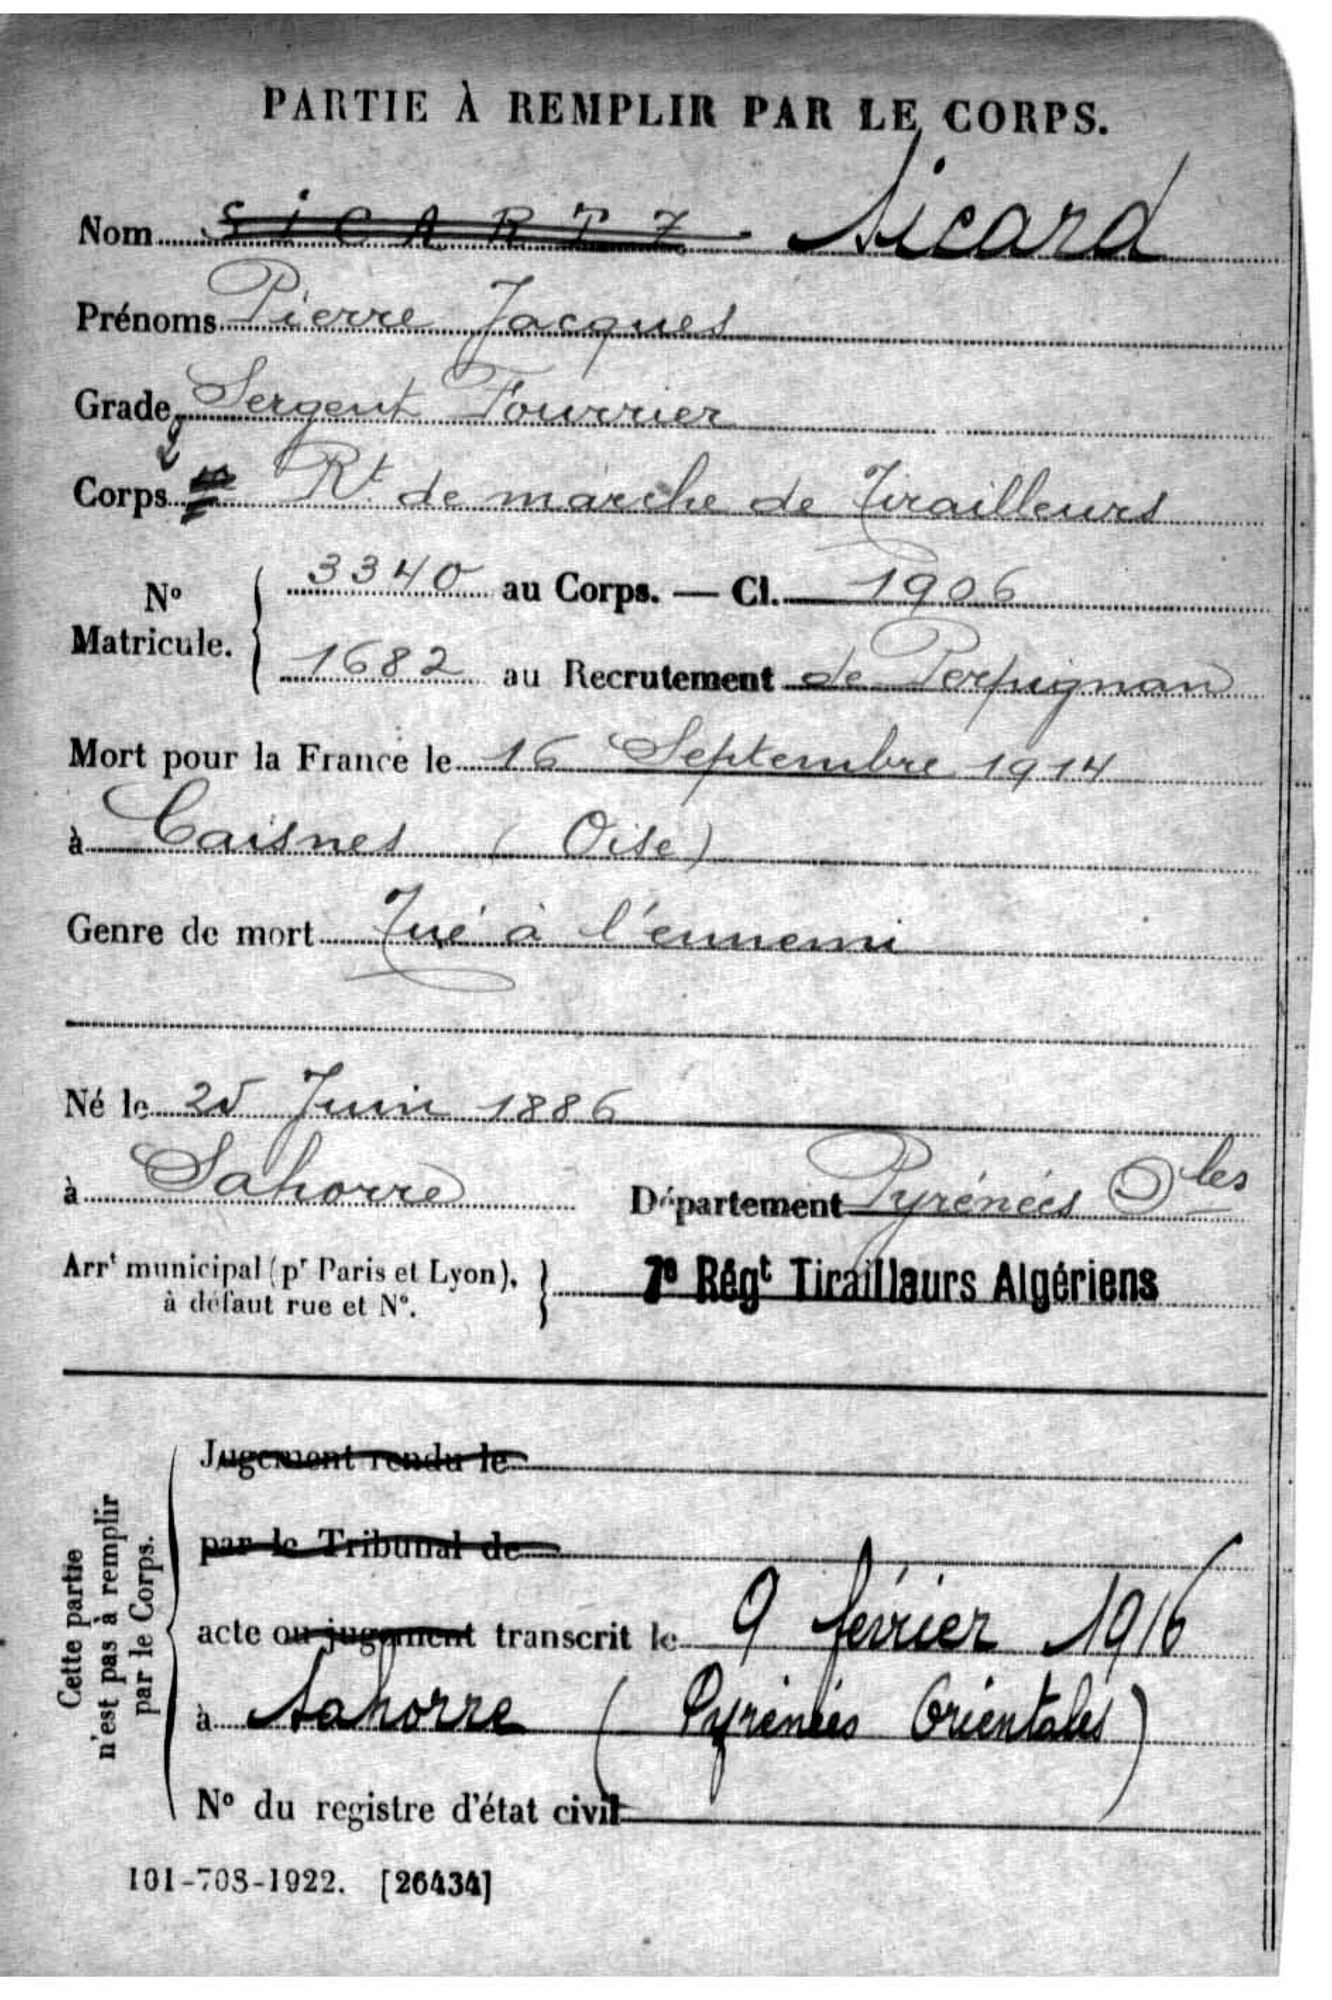 PARTIE À REMPLIR PAR LE CORPS.
Nom SICARTZ Sicard
Prénoms Pierre Jacques
Grade Sergent Fourrier
Corps 2 Rt de marche de Tirailleurs
No Matricule. 3340 au Corps. — Cl. 1906
1682 au Recrutement de Perpignan
Mort pour la France le 16 Septembre 1914
à Caisnes (Oise)
Genre de mort Tué à l'ennemi
Né le 25 Juin 1886
à Sahorre Département Pyrénées Oles
Arrt municipal (pr Paris et Lyon), à défaut rue et No. 7e Régt Tirailleurs Algériens
Cette partie n'est pas à remplir par le Corps.
Jugement rendu le
par le Tribunal de
acte ou jugement transcrit le 9 février 1916
à Sahorre (Pyrénées Orientales)
No du registre d'état civil
101-708-1922. [26434]